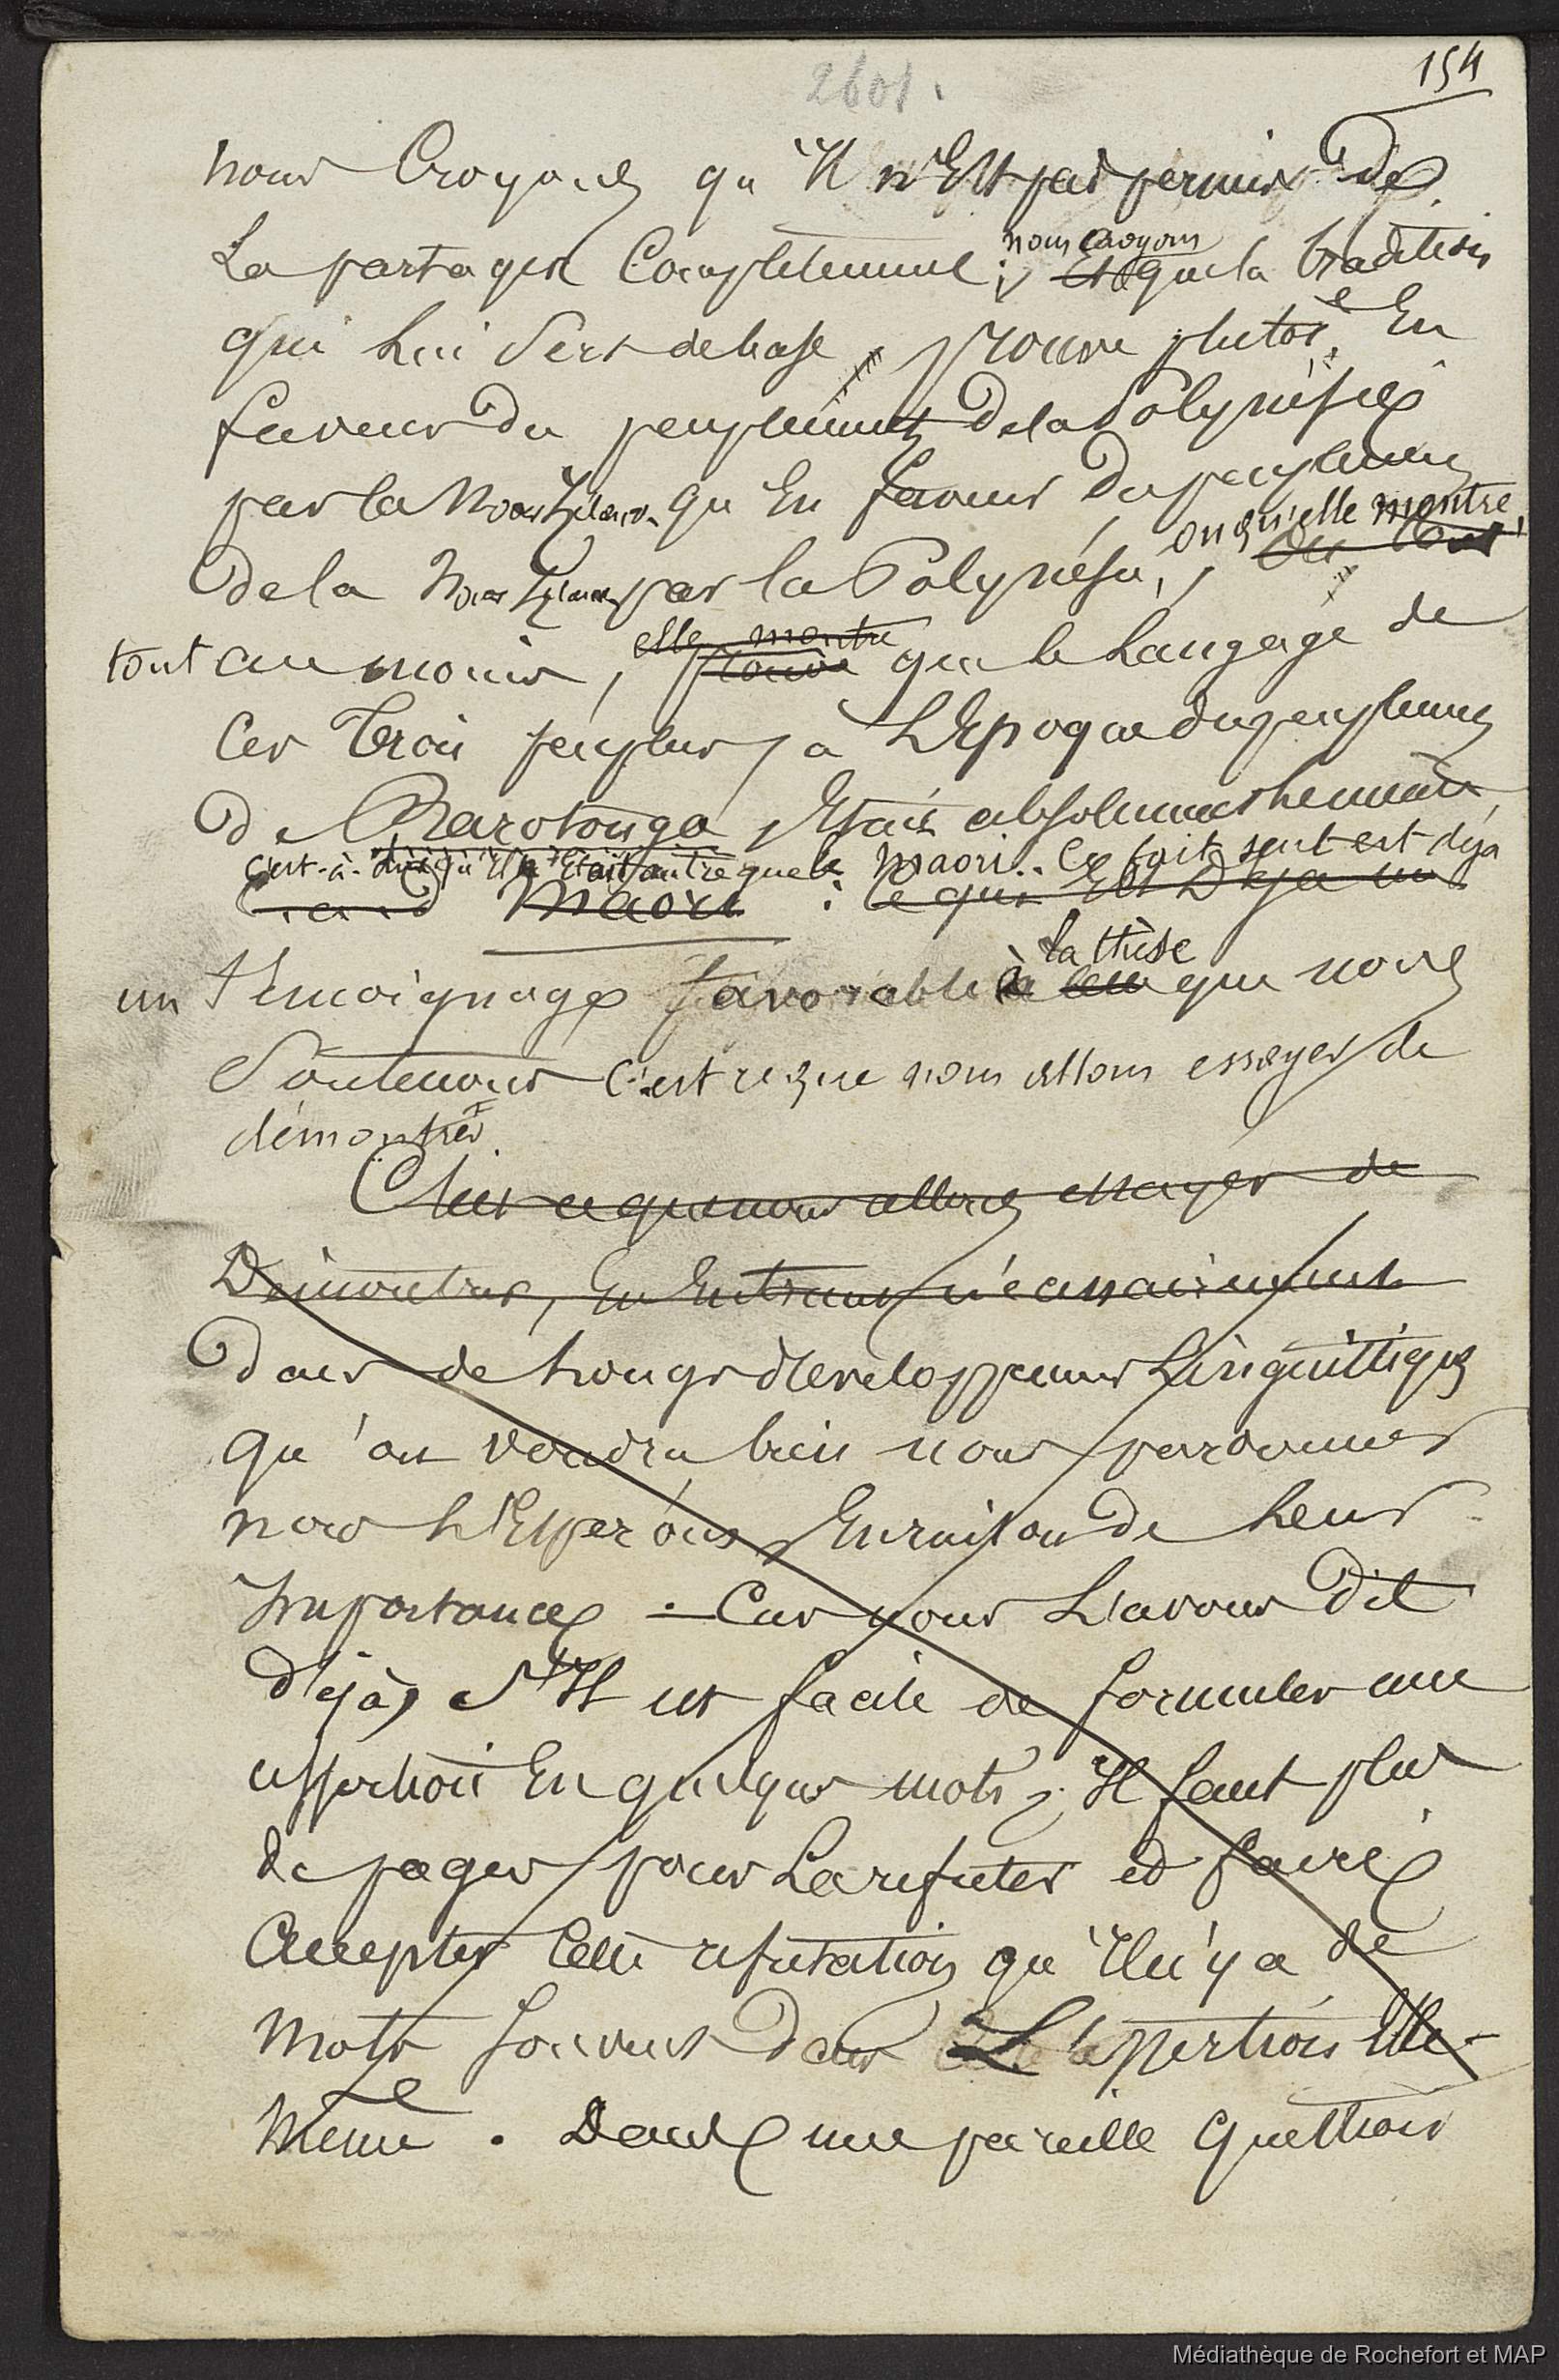 2601.
154
nous Croyons qu'Il n'Est pas permis de
La partager Complètement ; nous croyons Et que la tradition
qui Lui Sert de base, prouve plutôt En
faveur Du peuplement De la Polynésie
par la Nouv Zélande qu'En faveur Du peuplement
De la Nouv Zélande par la Polynésie, ou qu'elle montre, Ou tout
tout au moins, elle montre prouve que le Langage de
Ces trois peuples, à L'Epoque du peuplement
De Rarotonga, Etait absolument le même,
c'est-à-dire qu'Il n'était autre que le Maori. Ce fait seul est déjà
Maori : Ce qui Est Déjà un
un témoignage favorable à la thèse celle que nous
Soutenons C'est ce que nous allons essayer de
démontrer.
C'est ce que nous allons essayer de
Démontrer, En Entrant nécessairement
Dans de Longs développements Linguistiques
qu'on voudra bien nous pardonner
nous L'Espérons, En raison de Leur
Importance. - Car nous L'avons Dit
déjà, S'Il est facile de formuler une
assertion En quelques mots, Il faut plus
de pages pour La réfuter et faire
Accepter Cette réfutation qu'Il n'y a de
mots souvent Dans L'assertion Elle-
Même. Dans une pareille question
Médiathèque de Rochefort et MAP